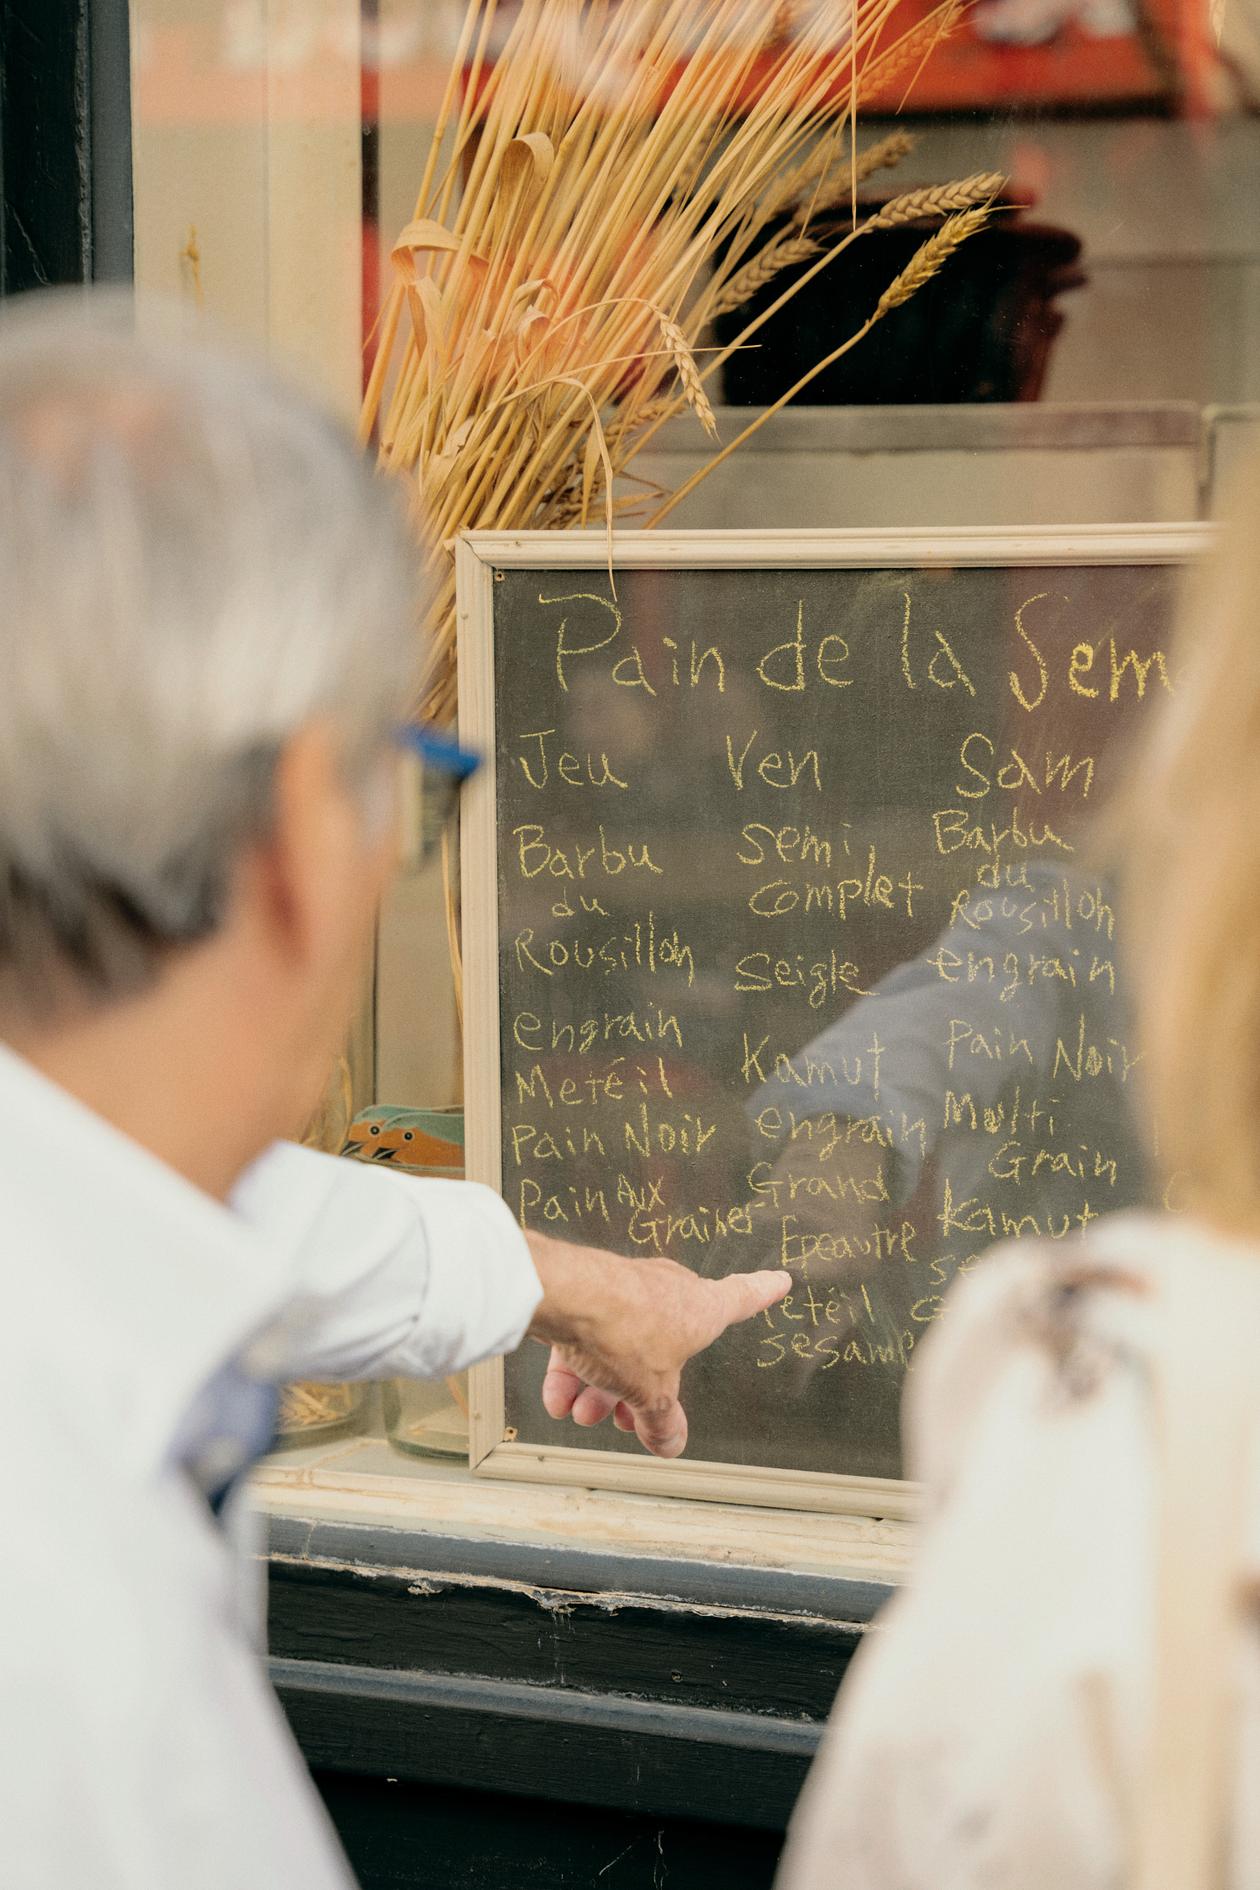 Pain de la Sem
Jeu
Barbu
du
Rousillon
engrain
Metéil
Pain Noir
Pain Aux
Graines
Ven
semi
complet
Seigle
Kamut
engrain
Grand
Epeautre
etéil
sesame
Sam
Barbu
du
Rousillon
engrain
Pain Noir
Multi
Grain
Kamut
se